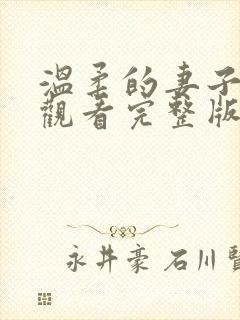 溫柔的妻子
觀看完整版
永井豪 石川賢